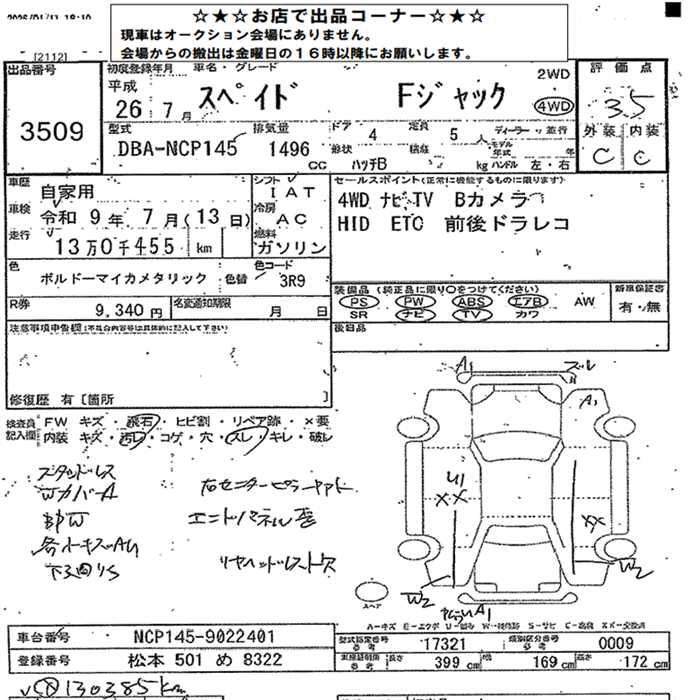 ☆★☆お店で出品コーナー☆★☆
現車はオークション会場にありません。
会場からの搬出は金曜日の16時以降にお願いします。
[2112]
出品番号 3509
初度登録年月 車名・グレード 2WD 評価点
平成 26年 7月 スペイド Fジャック 4WD 3.5
型式 排気量 ドア 4 定員 5人 ディーラー・並行 外装 内装
DBA-NCP145 1496cc 形状 ハッチB 積載 kg モデル年式 年 ハンドル 左・右 C C
車歴 自家用 シフト IAT セールスポイント(正常に機能するものに限ります)
車検 令和 9年 7月(13日) 冷房 AC 4WD ナビTV Bカメラ
走行 13万0千455km 燃料 ガソリン HID ETC 前後ドラレコ
色 ボルドーマイカメタリック 色替 色コード 3R9
装備品(純正品に限り○をつけてください) 新車保証書
PS PW ABS エアB AW 有・無
SR ナビ TV カワ
R券 9,340円 名変通知期限 月 日
後日品
注意事項申告欄(不具合内容等は具体的に記入して下さい)
修復歴 有[箇所
検査員記入欄 FW キズ・飛石・ヒビ割・リペア跡・×要
内装 キズ・汚レ・コゲ・穴・スレ・キレ・破レ
A1 スレ
A1
スタッドレス
WカバーA
U1
XX
XX
W2
W2
A1
スペア
A-キズ E-エクボ U-凹み W-補修跡 S-サビ C-腐蝕 XX-交換済
車台番号 NCP145-9022401
型式指定番号 参考 17321 類別区分番号 参考 0009
登録番号 松本 501 め 8322
長さ 399cm 幅 169cm 高さ 172cm
130385km